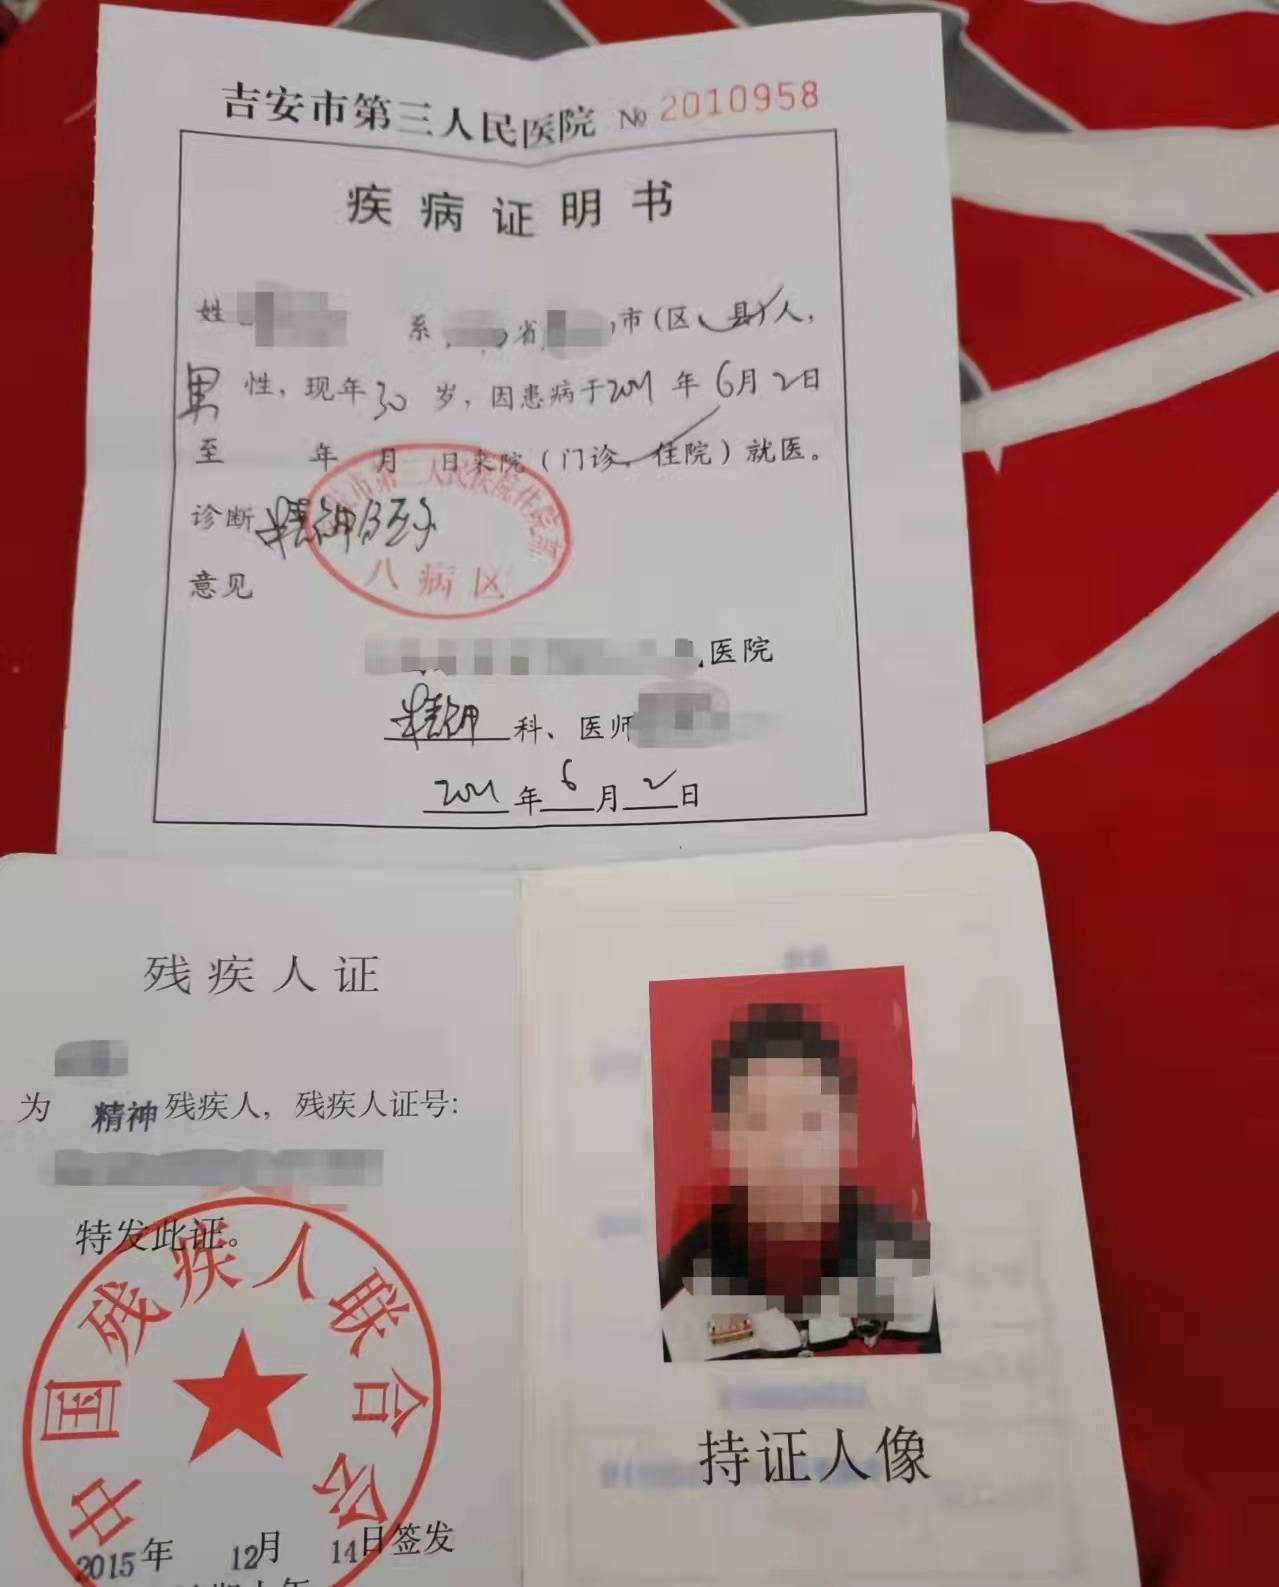 吉安市第三人民医院 № 2010958
疾病证明书
姓 系 省 市(区、县)人,
男性,现年30岁,因患病于2021年6月2日
至 年 月 日来院(门诊、住院)就医。
诊断 精神
意见
第三人民医院住院部
八病区
医院
精神科、医师
2021年6月2日
残疾人证
为 精神残疾人,残疾人证号:
特发此证。
中国残疾人联合会
2015年 12月 14日签发
持证人像